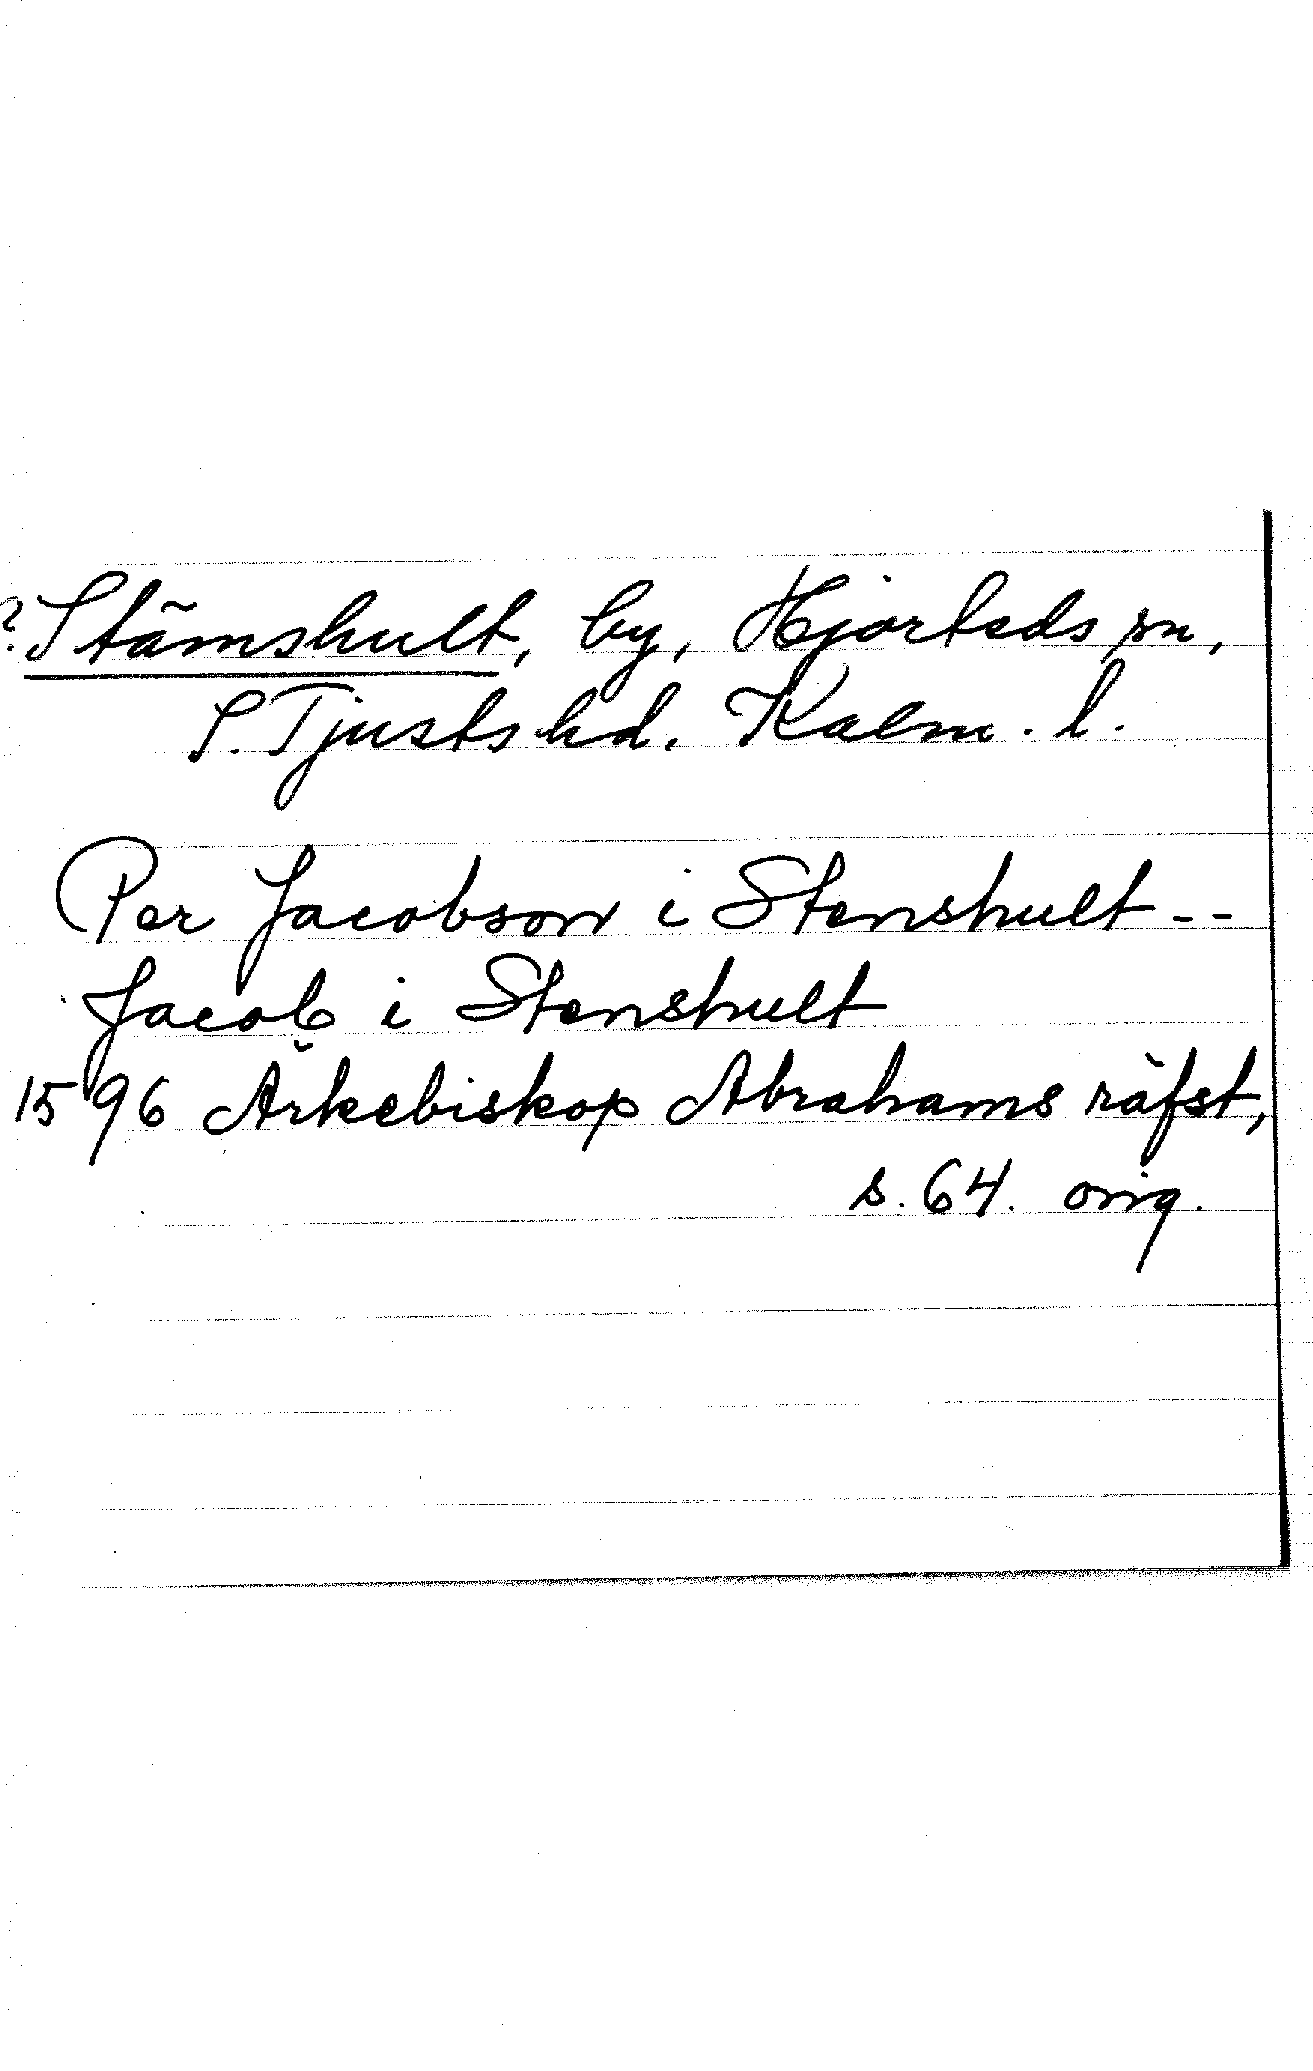 ? Stämshult, by, Hjorteds sn,
S. Tjusts hd. Kalm. l.
Per Jacobson i Stenshult --
Jacob i Stenshult
1596 Ärkebiskop Abrahams räfst,
s. 64. orig.